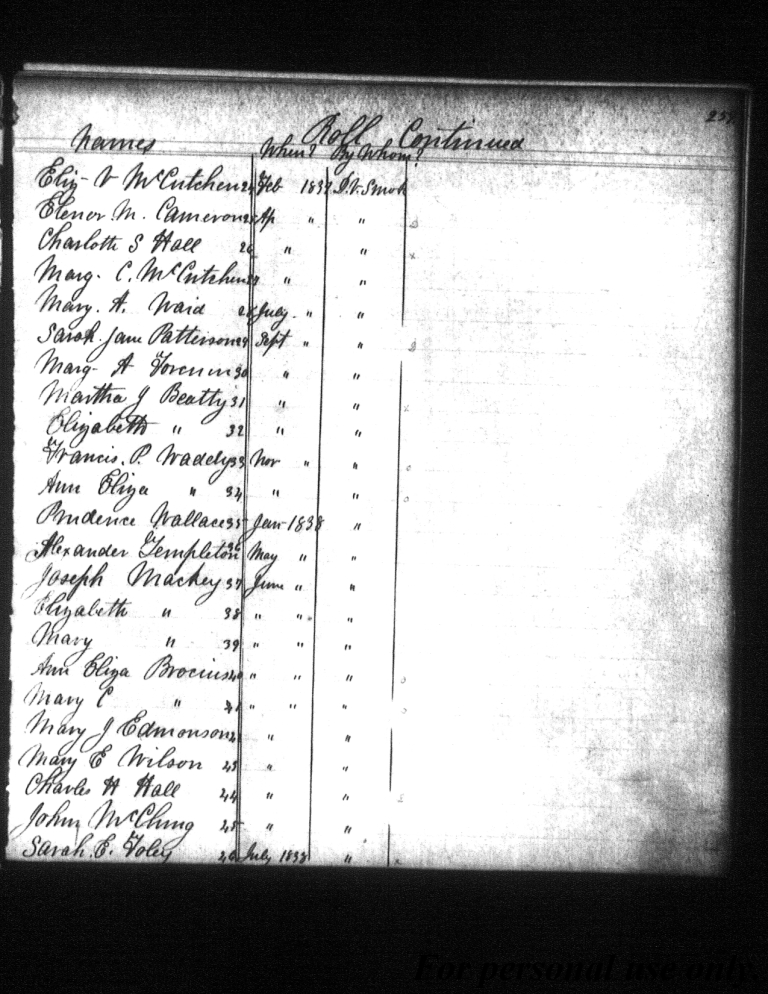 Roll Continued
Names When? By Whom?
Eliz- V McCutchen 24 Feb 1837
Elenor M. Cameron 25 Ap " "
Charlotte S Hall 26 " "
Marg. C. McCutchen 27 " "
Mary. A. Waid 28 July. " "
Sarah Jane Patterson 29 Sept " "
Marg- A 30 " "
Martha J Beatty 31 " "
Elizabeth " 32 " "
Francis. P. Waddy 33 Nov " "
Ann Eliza " 34 " "
Prudence Wallace 35 Jan- 1838 "
Alexander Templeton 36 May " "
Joseph Mackey 37 June " "
Elizabeth " 38 " " "
Mary " 39 " " "
Ann Eliza Brocius 40 " " "
Mary C " 41 " " "
Mary J Edmonson 42 " "
Mary E Wilson 43 " "
Charles H Hall 44 " "
John McClung 45 " "
Sarah. E. Foley 46 July 1838 "
For personal use only.